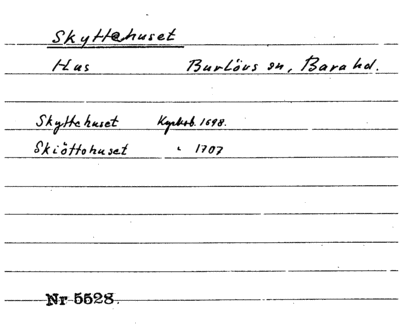 Skyttehuset
Hus Burlövs sn, Bara hd.
Skyttehuset Kyrkob. 1698.
Skiöttohuset " 1707
Nr 5528.